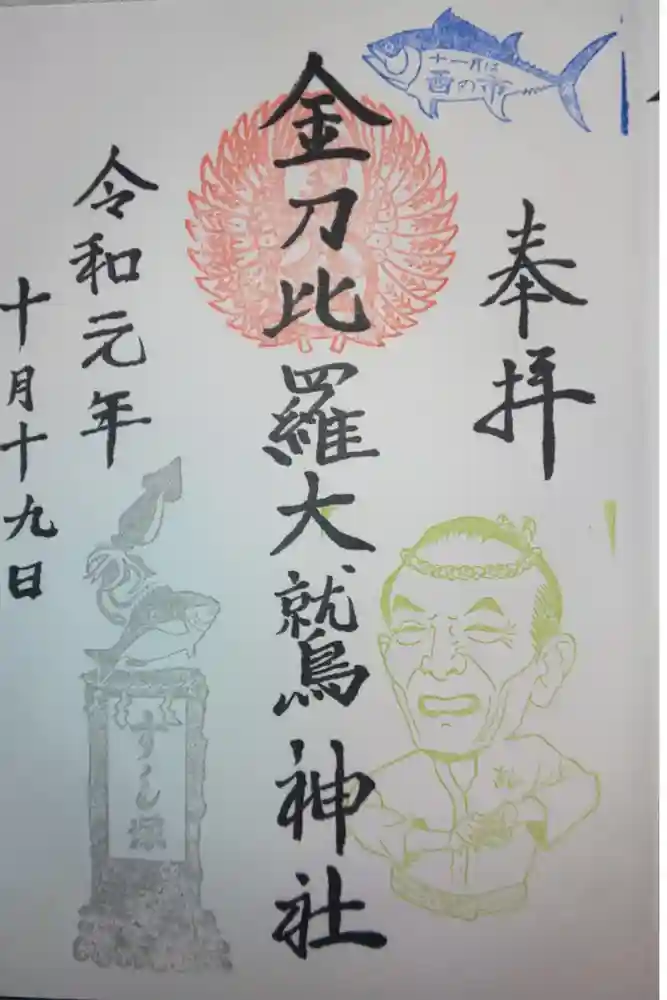 十一月は
酉の市
奉拝
金刀比羅大鷲神社
令和元年
十月十九日
すし塚